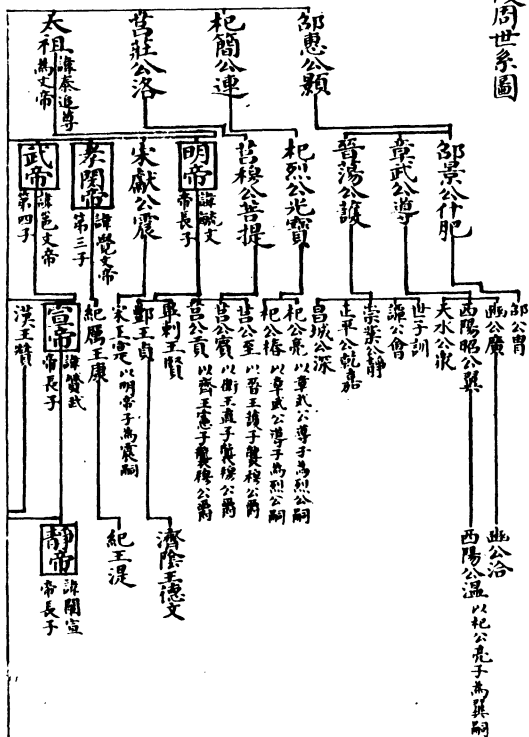 周世系圖
邵惠公顥
杞簡公連
莒莊公洛
太祖 諱泰追尊爲文帝
邵景公什肥
章武公導
晉蕩公護
杞烈公光寶
莒穆公菩提
明帝 諱毓文帝長子
宋獻公震
孝閔帝 諱覺文帝第三子
武帝 諱邕文帝第四子
邵公胄
豳公廣
西陽昭公翼
天水公衆
世子訓
譚公會
崇業公靜
正平公乾嘉
昌城公深
杞公亮 以章武公導子爲烈公嗣
杞公椿 以章武公導子爲烈公嗣
莒公至 以晉王護子襲穆公爵
莒公賓 以衛王直子襲穆公爵
莒公貢 以齊王憲子襲穆公爵
畢剌王賢
酆王貞
宋王寔 以明帝子爲震嗣
紀厲王康
宣帝 諱贇武帝長子
漢王贊
豳公洽
西陽公溫 以杞公亮子爲翼嗣
濟陰王德文
紀王湜
靜帝 諱闡宣帝長子